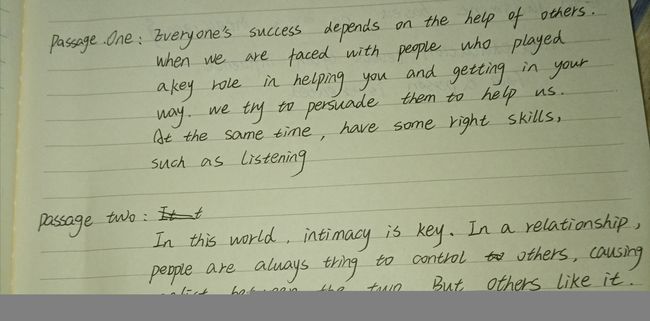 Passage One: Everyone's success depends on the help of others.
When we are faced with people who played
a key role in helping you and getting in your
way. we try to persuade them to help us.
At the same time, have some right skills,
such as listening
passage two: It t
In this world, intimacy is key. In a relationship,
people are always tring to control to others, causing
between the two But others like it.